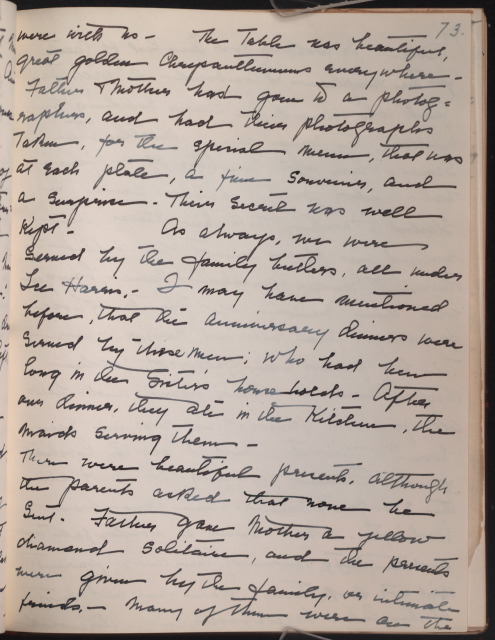 73.
were with us - The Table was beautiful,
great golden Chrysanthemums everywhere -
Father & Mother had gone to a photog=
raphers, and had their photographs
Taken, for the special menu, that was
at each plate, a fine Souvenir, and
a Surprise - Their Secret was well
Kept - As always, we were
Served by the family butlers, all under
Lee Harris, - I may have mentioned
before, that the anniversary dinners were
Served by those men; who had been
long in the Sisters house holds - After
our dinner, they ate in the Kitchen, the
maids Serving them -
There were beautiful presents, although
the parents asked that none be
Sent - Father gave Mother a yellow
diamond Solitaire, and the presents
were given by the family, or intimate
friends, - Many of them were on the